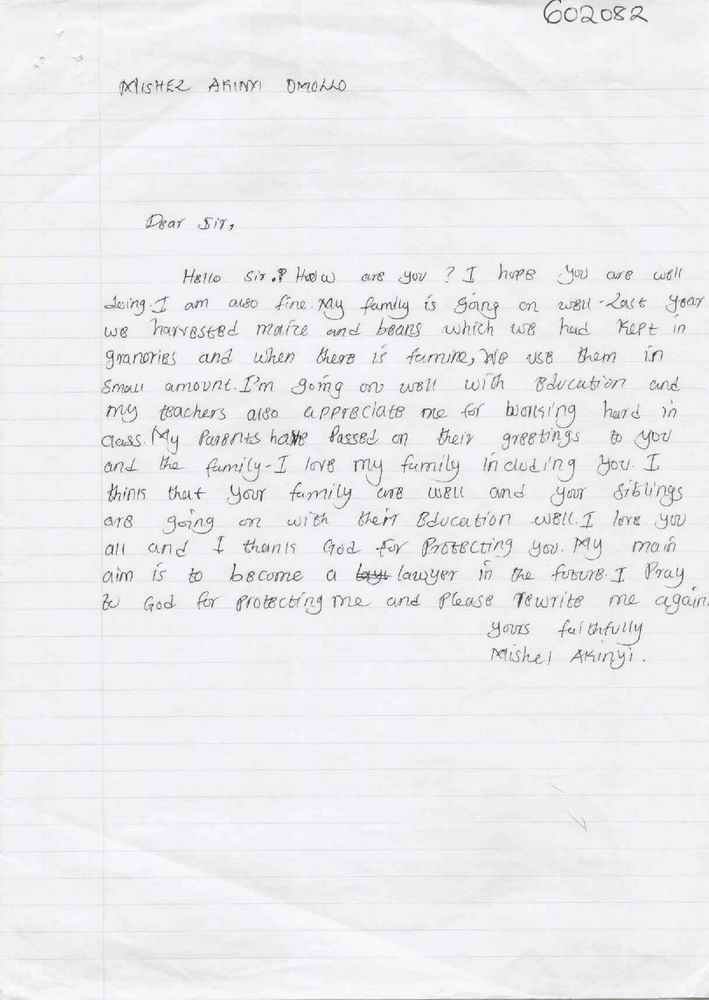 602082
MISHEL AKINYI OMOLLO
Dear Sir,
Hello Sir.? How are you ? I hope you are well
doing. I am also fine. My family is going on well. Last year
we harvested maize and beans which we had kept in
granaries and when there is famine, We use them in
small amount. I'm going on well with Education and
my teachers also appreciate me for working hard in
class. My Parents have Passed on their greetings to you
and the family. I love my family including you. I
think that your family are well and your siblings
are going on with their Education well. I love you
all and I thank God for Protecting you. My main
aim is to become a lawyer in the future. I Pray
to God for protecting me and Please rewrite me again.
Yours faithfully
Mishel Akinyi.